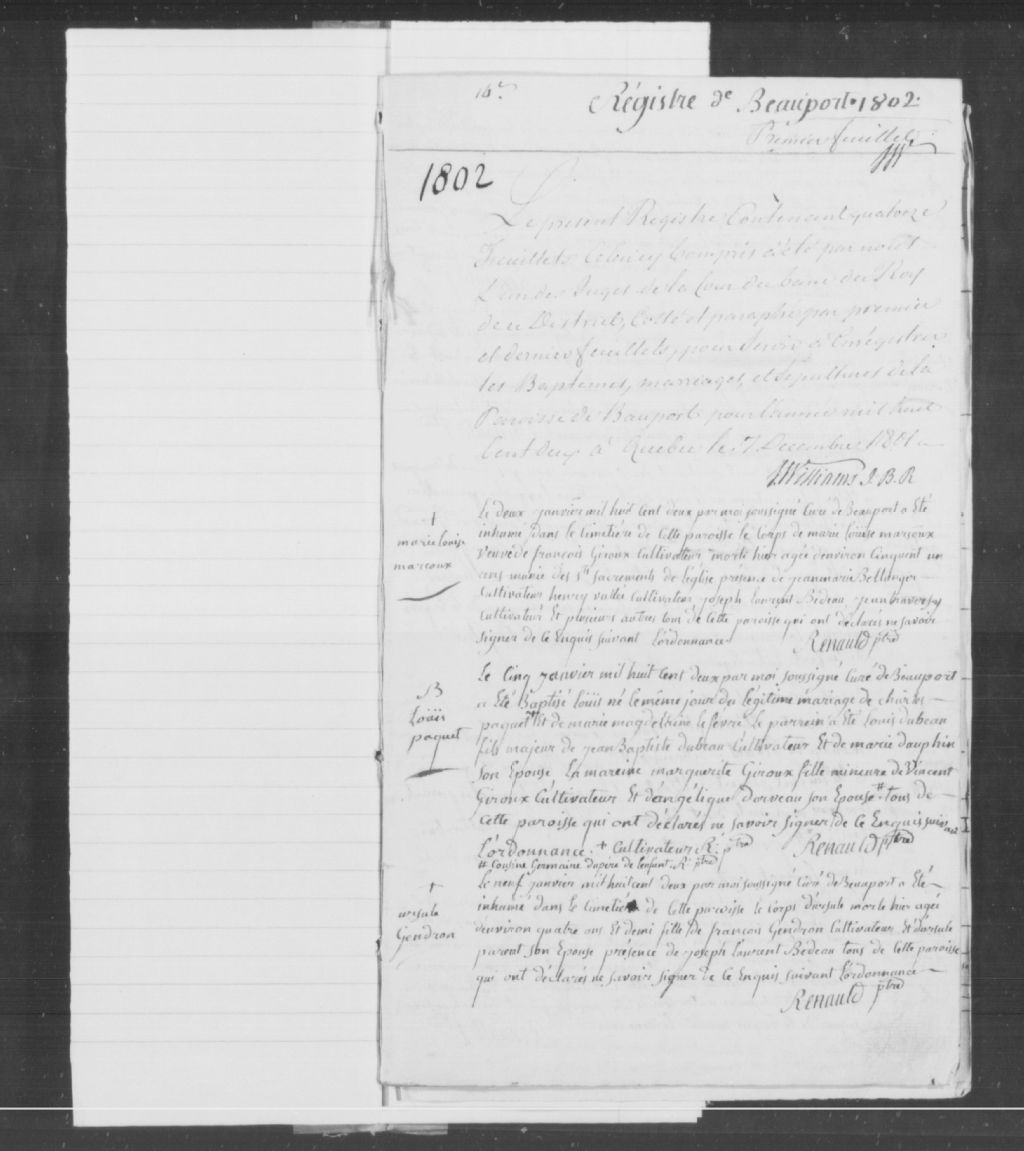 14e
Régistre de Beauport 1802.
Premier feuillet.
1802
Le présent Régistre Contenant quatorze
feuillets Celuicy Compris a été par nous
L'un des Juges de la Cour du banc du Roy
de ce District, Cotté et paraphé par premier
et dernier feuillets, pour servir à Enrégistrer
les Baptemes, mariages, et sépultures de la
Paroisse de Bauport pour l'année mil huit
Cent deux à Quebec le 7 Decembre 1801
JWilliams J. B. R
+
marie louise
marcoux
Le deux janvier mil huit Cent deux par moi soussigné Curé de Beauport a Eté
inhumé dans le Cimetiére de Cette paroisse le Corps de marie louise marcoux
veuve de francois Giroux Cultivateur morte hier agée d'environ Cinquent un
ans munie des Sts sacrements de l'église présence de jean marie Bellanger
Cultivateur henry Cultivateur joseph laurent Bédeau jean
Cultivateur Et plusieurs autres tous de Cette paroisse qui ont déclarés ne savoir
signer de Ce Enquis suivant L'ordonnance Renauld ptre
B
Loüis
paquet
Le Cinq janvier mil huit Cens deux par moi soussigné Curé de Beauport
a Eté Baptisé loüis né le même jour du légitime mariage de charles
paquet + Et de marie magdelaine lefevre Le parrein a Eté Louis dubeau
fils majeur de jean Baptiste dubeau Cultivateur Et de marie dauphin
son Epouse La mareine marguerite Giroux fille mineure de Vincent
Giroux Cultivateur Et d'angélique dorveau son Epouse # tous de
Cette paroisse qui ont déclarés ne savoir signer de Ce Enquis suivant
L'ordonnance. + Cultivateur R. ptre Renauld ptre
# Cousine Germaine du pere de l'enfant. R. ptre
+
ursule
Gendron
Le neuf janvier mil huit cent deux par moi soussigné Curé de Beauport a Eté
inhumé dans Le Cimetiére de Cette paroisse le Corps d'ursule morte hier agée
d'environ quatre ans Et demi fille de francois Gendron Cultivateur Et d'ursule
parent son Epouse présence de joseph Laurent Bedeau tous de Cette paroisse
qui ont déclarés ne savoir signer de Ce Enquis suivant L'ordonnance
Renauld ptre